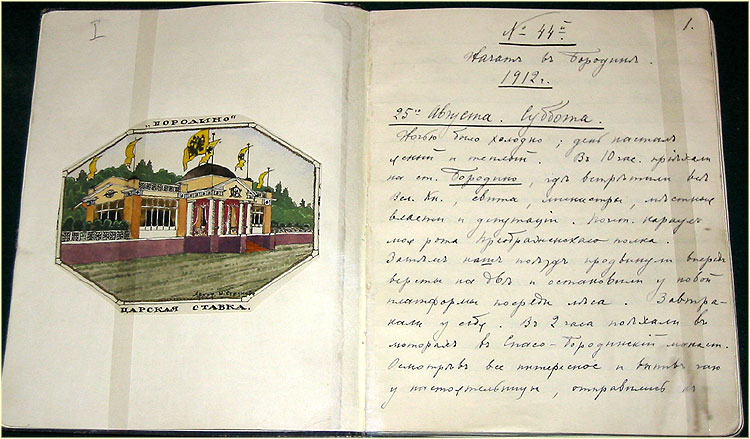 I
„БОРОДИНО"
ЦАРСКАЯ СТАВКА.
1.
№ 44й.
Начатъ въ Бородинѣ.
1912 г.
25го Августа. Суббота.
Ночью было холодно; день насталъ
ясный и теплый. Въ 10 час. пріѣхали
на ст. Бородино, гдѣ встрѣтили всѣ
Вел. Кн., свита, министры, мѣстныя
власти и депутаціи. Почт. караулъ
моя рота Преображенскаго полка.
Затѣмъ нашъ поѣздъ продвинули впередъ
версты на двѣ и остановили у новой
платформы посреди лѣса. Завтра-
кали у себя. Въ 2 часа поѣхали въ
моторахъ въ Спасо-Бородинскій монаст.
Осмотрѣвъ все интересное и выпивъ чаю
у настоятельницы, отправились къ